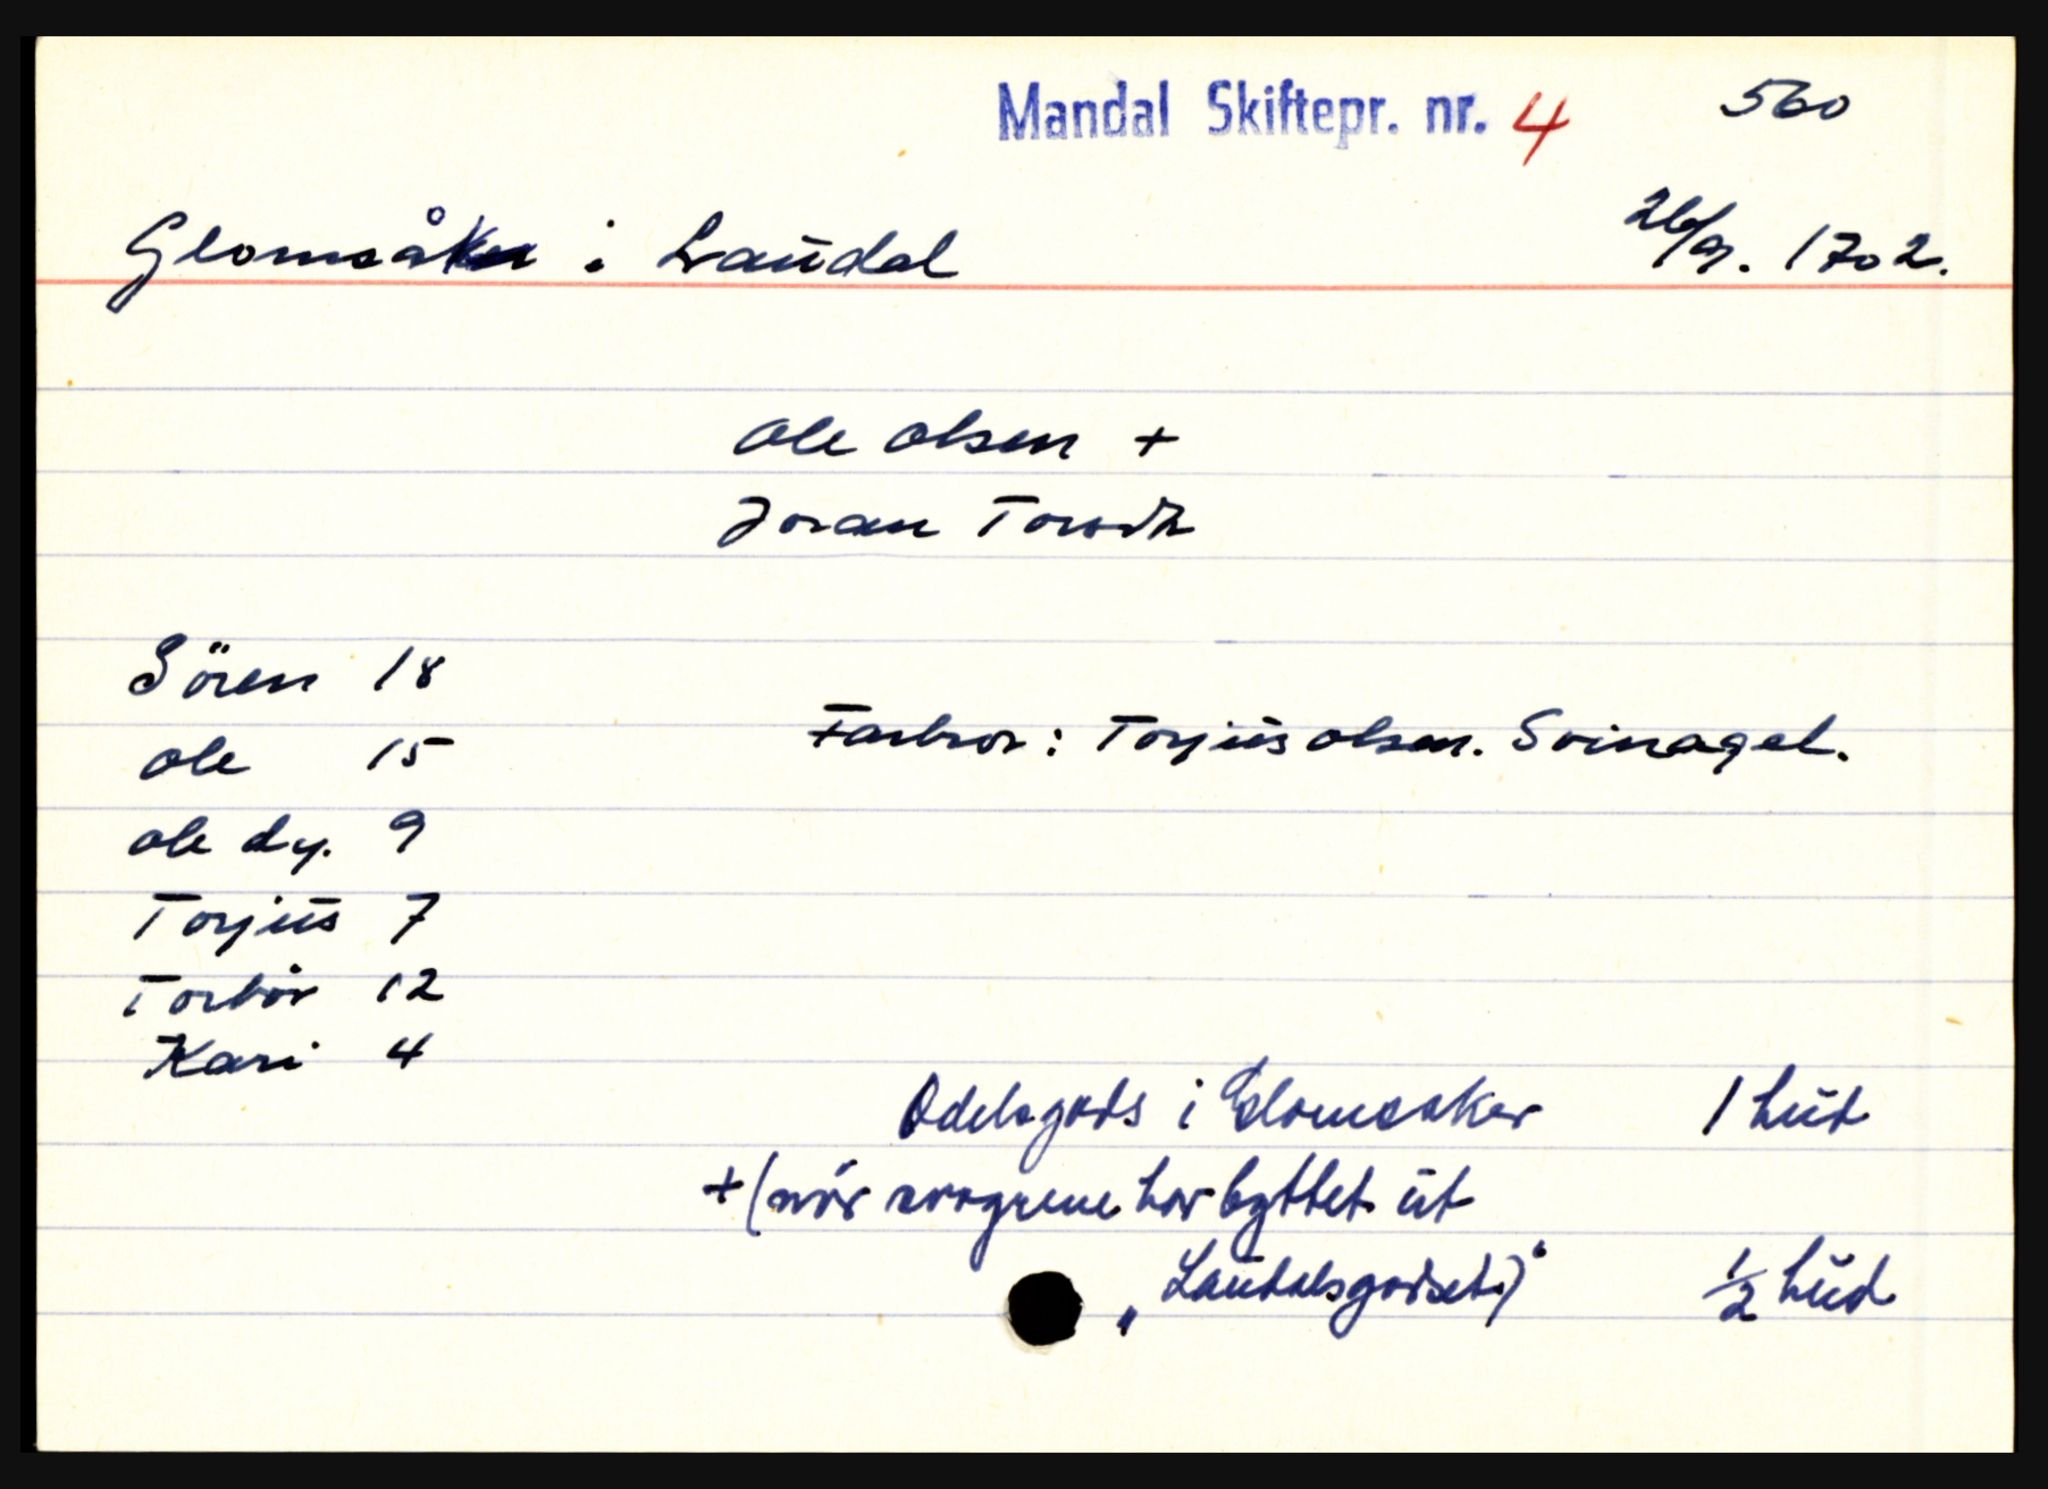 Mandal Skiftepr. nr. 4 560
Glomsåker i Laudal 26/9. 1702.
Ole Olsen +
Joran Torsdtr
Sören 18
Ole 15
Farbror: Torjus Olsen. Svinagel.
Ole dy. 9
Torjus 7
Torbör 12
Kari 4
Odelsgods i Glomsaker 1 hud
+ (når svogrene har byttet ut
„Laudalsgodset)" 1/2 hud